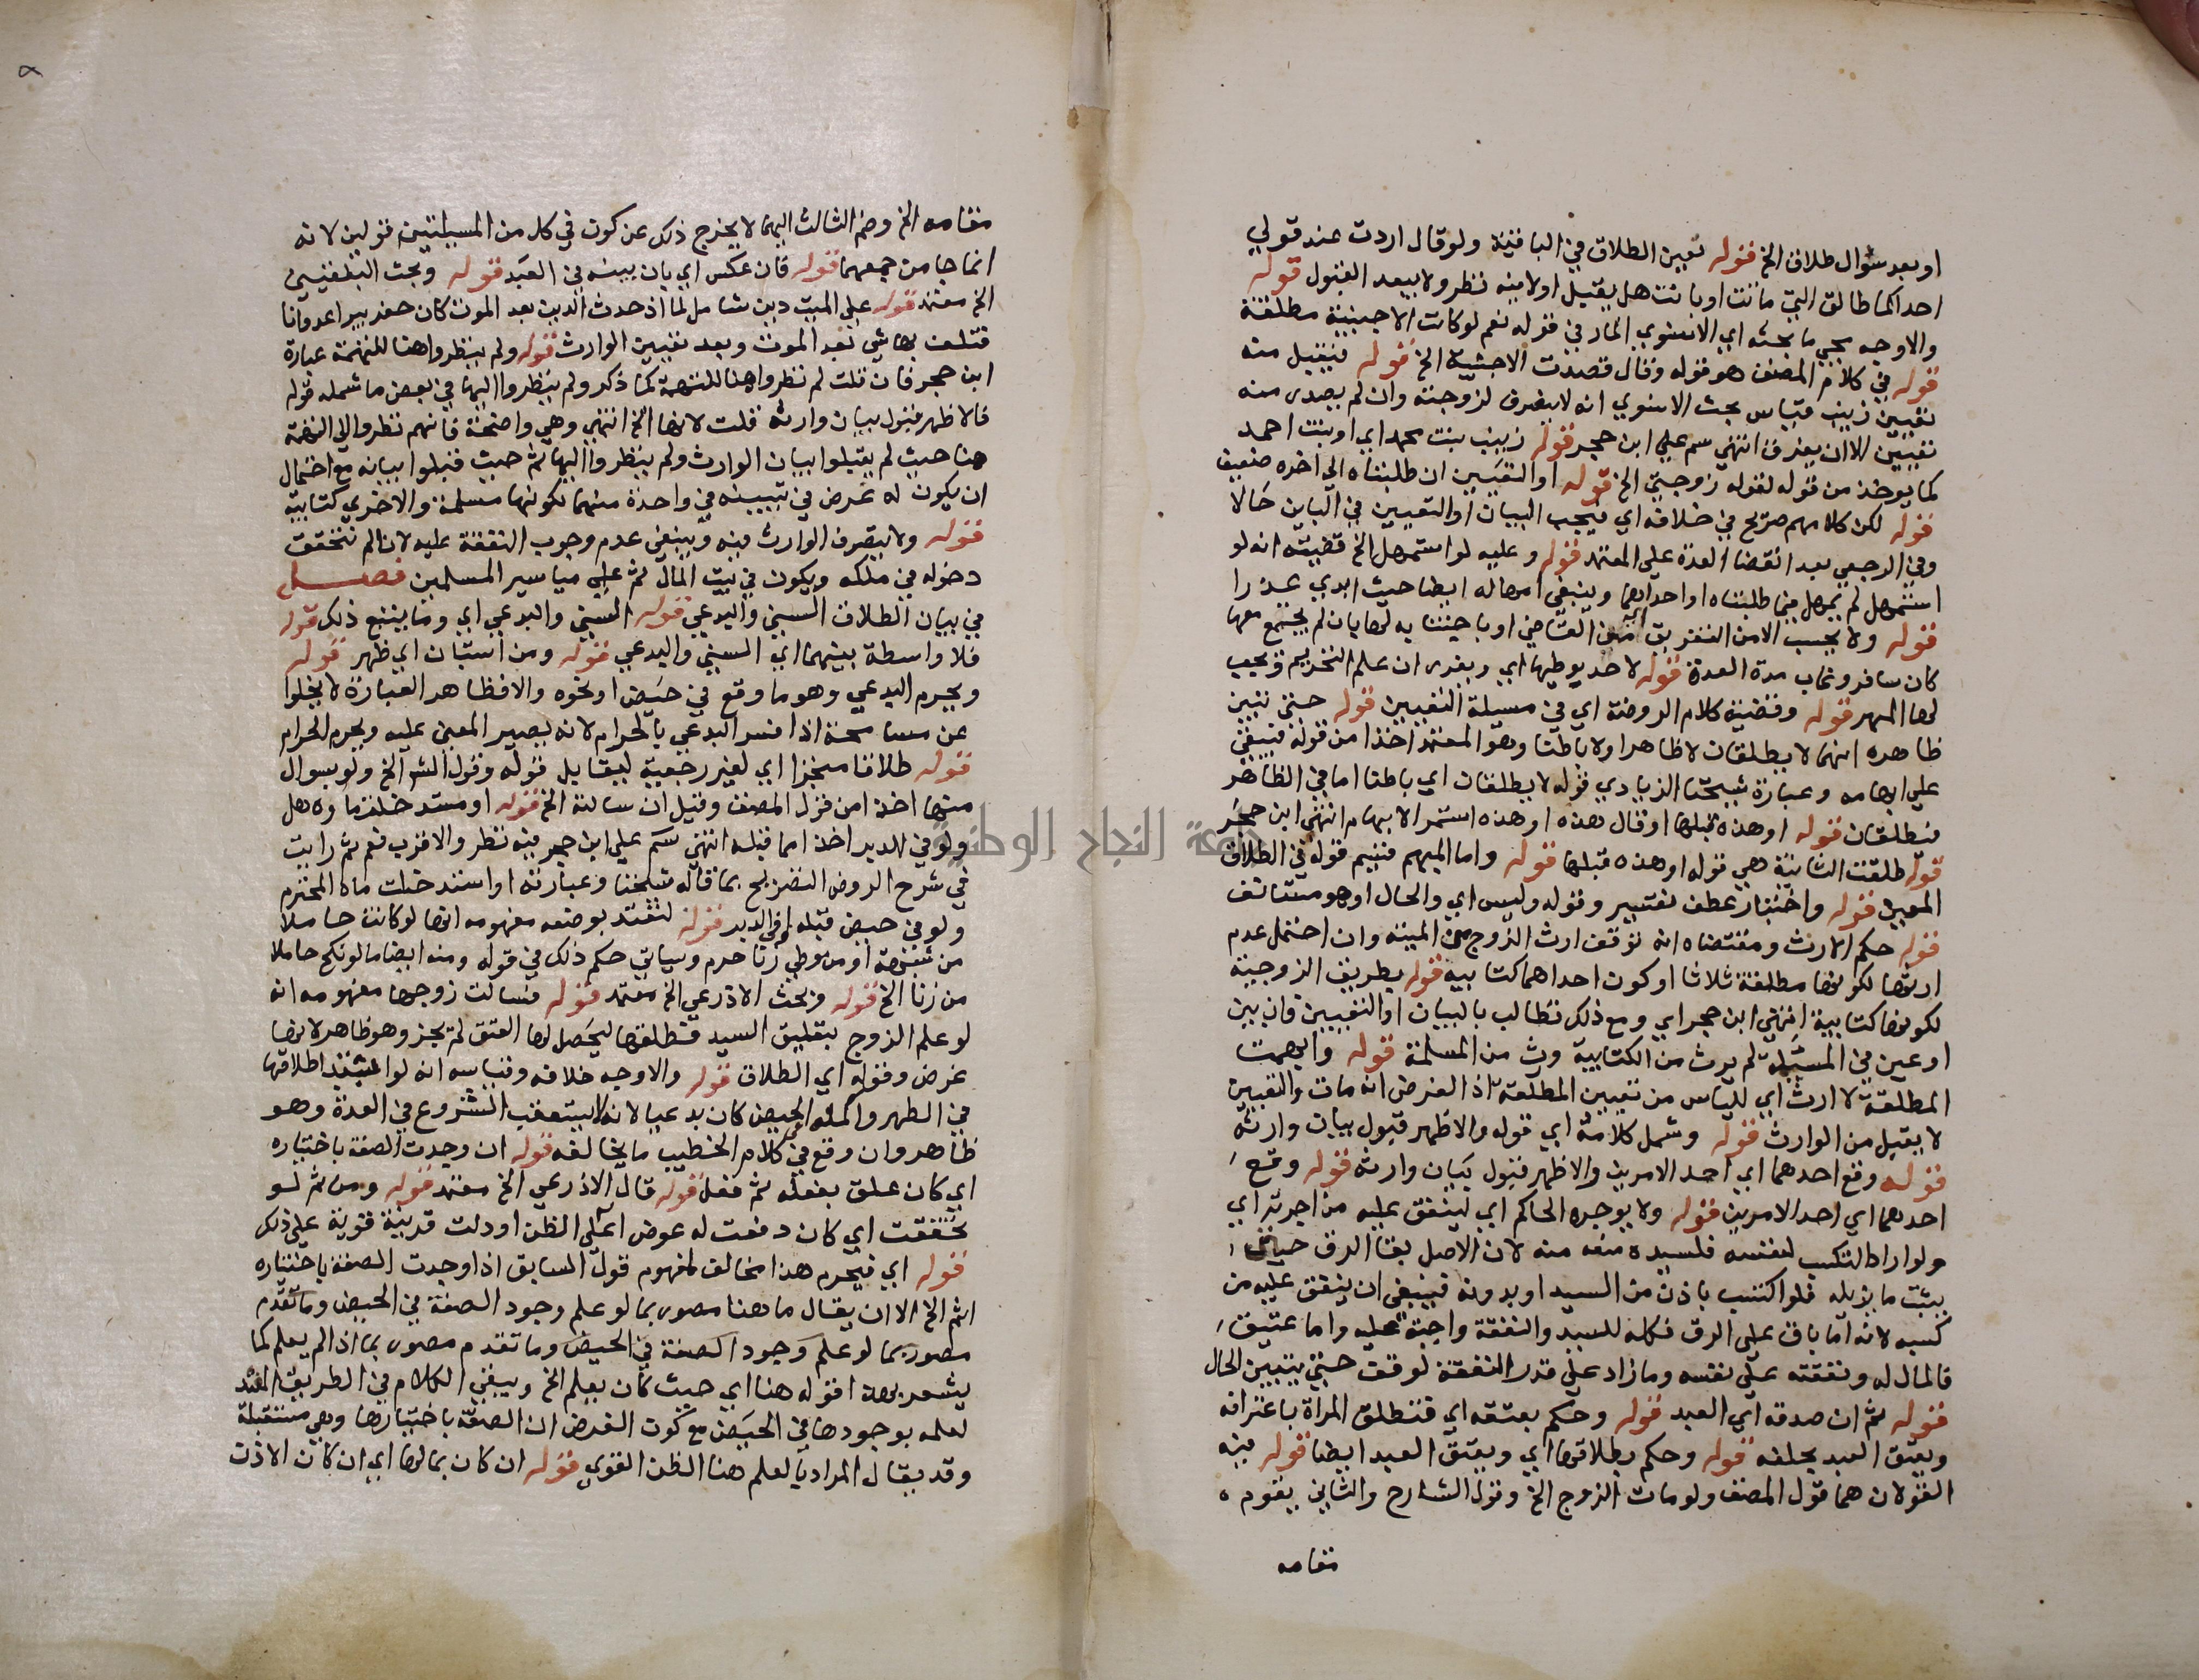 او بعد سؤال طلاق الخ قوله تعين الطلاق في الباقية ولو قال اردت عند قولي
احداكما طالق التي ماتت او بانت هل يقبل اولا فيه نظر ولا يبعد القبول قوله
والاوجه مجي ما بحثه اي الاسنوي المار في قوله نعم لو كانت الاجنبية مطلقة
قوله في كلام المصنف هو قوله وقال قصدت الاجنبية الخ قوله فيقبل منه
تعيين زينب قياس بحث الاسنوي انه لا يعرف لزوجته وان لم يصدق منه
تعيين الا ان يعرف انتهى سم علي ابن حجر قوله زينب بنت محمد اي او بنت احمد
كما يوخذ من قوله لقوله زوجتي الخ قوله او التعيين ان طلبتاه الي اخره ضعيف
قوله لكن كلامهم صريح في خلافه اي فيجب البيان او التعيين في الباين حالا
وفي الرجعي بعد انقضا العدة علي المعتمد قوله وعليه لو استمهل الخ قضيته انه لو
استمهل لم يمهل فيما طلبتاه او احداهما وينبغي امهاله ايضا حيث ابدي عذرا
قوله ولا يحسب الا من التفريق اي من القاضي او باجتنابه لها بان لم يجتمع معها
كان سافر وغاب مدة العدة قوله لا حد بوطيها اي ويعزر ان علم التحريم ويجب
لها المهر قوله وقضية كلام الروضة اي في مسيلة التعيين قوله حتى تبين
ظاهره انهما لا يطلقان لا ظاهرا ولا باطنا وهو المعتمد اخذا من قوله فيبقى
علي ابهامه وعبارة شيخنا الزيادي قوله لا يطلقان اي باطنا اما في الظاهر
فيطلقان قوله او هذه قبلها او قال هذه او هذه استمر الابهام انتهى ابن حجر
قوله طلقت الثانية هي قوله او هذه قبلها قوله واما المبهم فقيم قوله في الطلاق
المعين قوله واختبار عطف تفسير وقوله وليس اي والحال او هو مستانف
قوله حكم الارث ومقتضاه انه توقف ارث الزوج من المبينه وان احتمل عدم
ارثها لكونها مطلقة ثلاثا او كون احداهما كتابية قوله بطريق الزوجية
لكونها كتابية انتهى ابن حجر اي ومع ذلك تطالب بالبيان او التعيين فان بين
او عين في المسئلة لم يرث من الكتابية ورث من المسلمة قوله وابهمت
المطلقة لا ارث اي للياس من تعيين المطلقة اذ الفرض انه مات والتعيين
لا يقبل من الوارث قوله وشمل كلامه اي قوله والاظهر قبول بيان وارثه
قوله وقع احدهما اي احد الامرين والاظهر قبول بيان وارثه قوله وقع
احدهما اي احد الامرين قوله ولا يوجره الحاكم اي لينفق عليه من اجرته اي
ولو اراد التكسب لنفسه فلسيده منعه منه لان الاصل بقا الرق حتى
يثبت ما يزيله فلو اكتسب باذن من السيد او بدونه فينبغي ان ينفق عليه من
كسبه لانه اما باق علي الرق فكله للسيد والنفقة واجبة عليه واما عتيق
فالمال له ونفقته علي نفسه وما زاد علي قدر النفقة لوقف حتى يتبين الحال
قوله ثم ان صدقه اي العبد قوله وحكم بعتقه اي فتطلق المراة باعترافه
ويعتق العبد بحلفه قوله وحكم بطلاقها اي ويعتق العبد ايضا قوله فيه
القولان هما قول المصنف ولو مات الزوج الخ وقول الشارح والثاني يقوم
مقامه
مقامه الخ وضم الثالث اليهما لا يخرج ذلك عن كون في كل من المسيلتين قولين لانه
انما جا من جمعهما قوله فان عكس اي بان بينه في العبد قوله وبحث البلقيني
الخ معتمد قوله علي الميت دين شامل لما اذ حدث الدين بعد الموت كان حفر بيرا عدوانا
فتلف بها شي بعد الموت وبعد تعيين الوارث قوله ولم ينظروا هنا للتهمة عبارة
ابن حجر فان قلت لم نظروا هنا للتهمة كما ذكر ولم ينظروا اليها في بعض ما شمله قوله
فالاظهر قبول بيان وارثه قلت لانها الخ انتهى وهي واضحة فانهم نظروا الي التهمة
هنا حيث لم يقبلوا بيان الوارث ولم ينظروا اليها ثم حيث قبلوا بيانه مع احتمال
ان يكون له غرض في تبيينه في واحدة منهما لكونها مسلمة والاخري كتابية
قوله ولا يتصرف الوارث فيه وينبغي عدم وجوب النفقة عليه لانا لم نتحقق
دخوله في ملكه ويكون في بيت المال ثم علي مياسير المسلمين فصل
في بيان الطلاق السني والبدعي قوله السني والبدعي اي وما يتبع ذلك قوله
فلا واسطة بينهما اي السني والبدعي قوله ومن استبان اي ظهر قوله
ويحرم البدعي وهو ما وقع في حيض او نحوه والا فظاهر العبارة لا يخلوا
عن مسامحة اذا فسر البدعي بالحرام لانه يصير المعنى عليه ويحرم الحرام
قوله طلاقا منجزا اي لغير رجعية ليقابل قوله وقول الشر الخ ولو بسوال
منها اخذا من قول المصنف وقيل ان سالته الخ قوله او مستدخلة ماه هل
ولو في الدبر اخذا مما قبله انتهى سم علي ابن حجر فيه نظر والاقرب نعم ثم رايت
في شرح الروض التصريح بما قاله شيخنا وعبارته او استدخلت ماه المحترم
ولو في حيض قبله او في الدبر قوله لتعتد بوضعه مفهومه انها لو كانت حاملا
من شبهة او من وطي زنا حرم وسياتي حكم ذلك في قوله ومنه ايضا ما لو نكح حاملا
من زنا الخ قوله وبحث الاذرعي الخ معتمد قوله فسالت زوجها مفهومه انه
لو علم الزوج بتعليق السيد فطلقها ليحصل لها العتق لم يجز وهو ظاهر لانها
غرض وقوله اي الطلاق قوله والاوجه خلافه وقياسه انه لو اطلاقها
في الطهر واكمله الحيض كان بدعيا لانه لا يستعقب الشروع في العدة وهو
ظاهر وان وقع في كلام الخطيب ما يخالفه قوله ان وجدت الصفة باختياره
اي كان علق بفعله ثم فعل قوله قال الاذرعي الخ معتمد قوله ومن ثم لو
تحققت اي كان دفعت له عوض اعلي الظن او دلت قرينة قوية علي ذلك
قوله اي فيحرم هذا مخالف لمفهوم قول السابق اذا وجدت الصفة باختياره
اثم الخ الا ان يقال ما هنا مصور بما لو علم وجود الصفة في الحيض وما تقدم
مصور بما لو علم وجود الصفة في الحيض وما تقدم مصور بما اذا لم يعلم كما
يشعر بهذا قوله هنا اي حيث كان يعلم الخ ويبقي الكلام في الطريق المفيد
لعلمه بوجودها في الحيض مع كون الفرض ان الصفة باختيارها وهي مستقبلة
وقد يقال المراد بالعلم هنا الظن القوي قوله ان كان بمالها اي ان كان الاذن
جامعة النجاح الوطنية